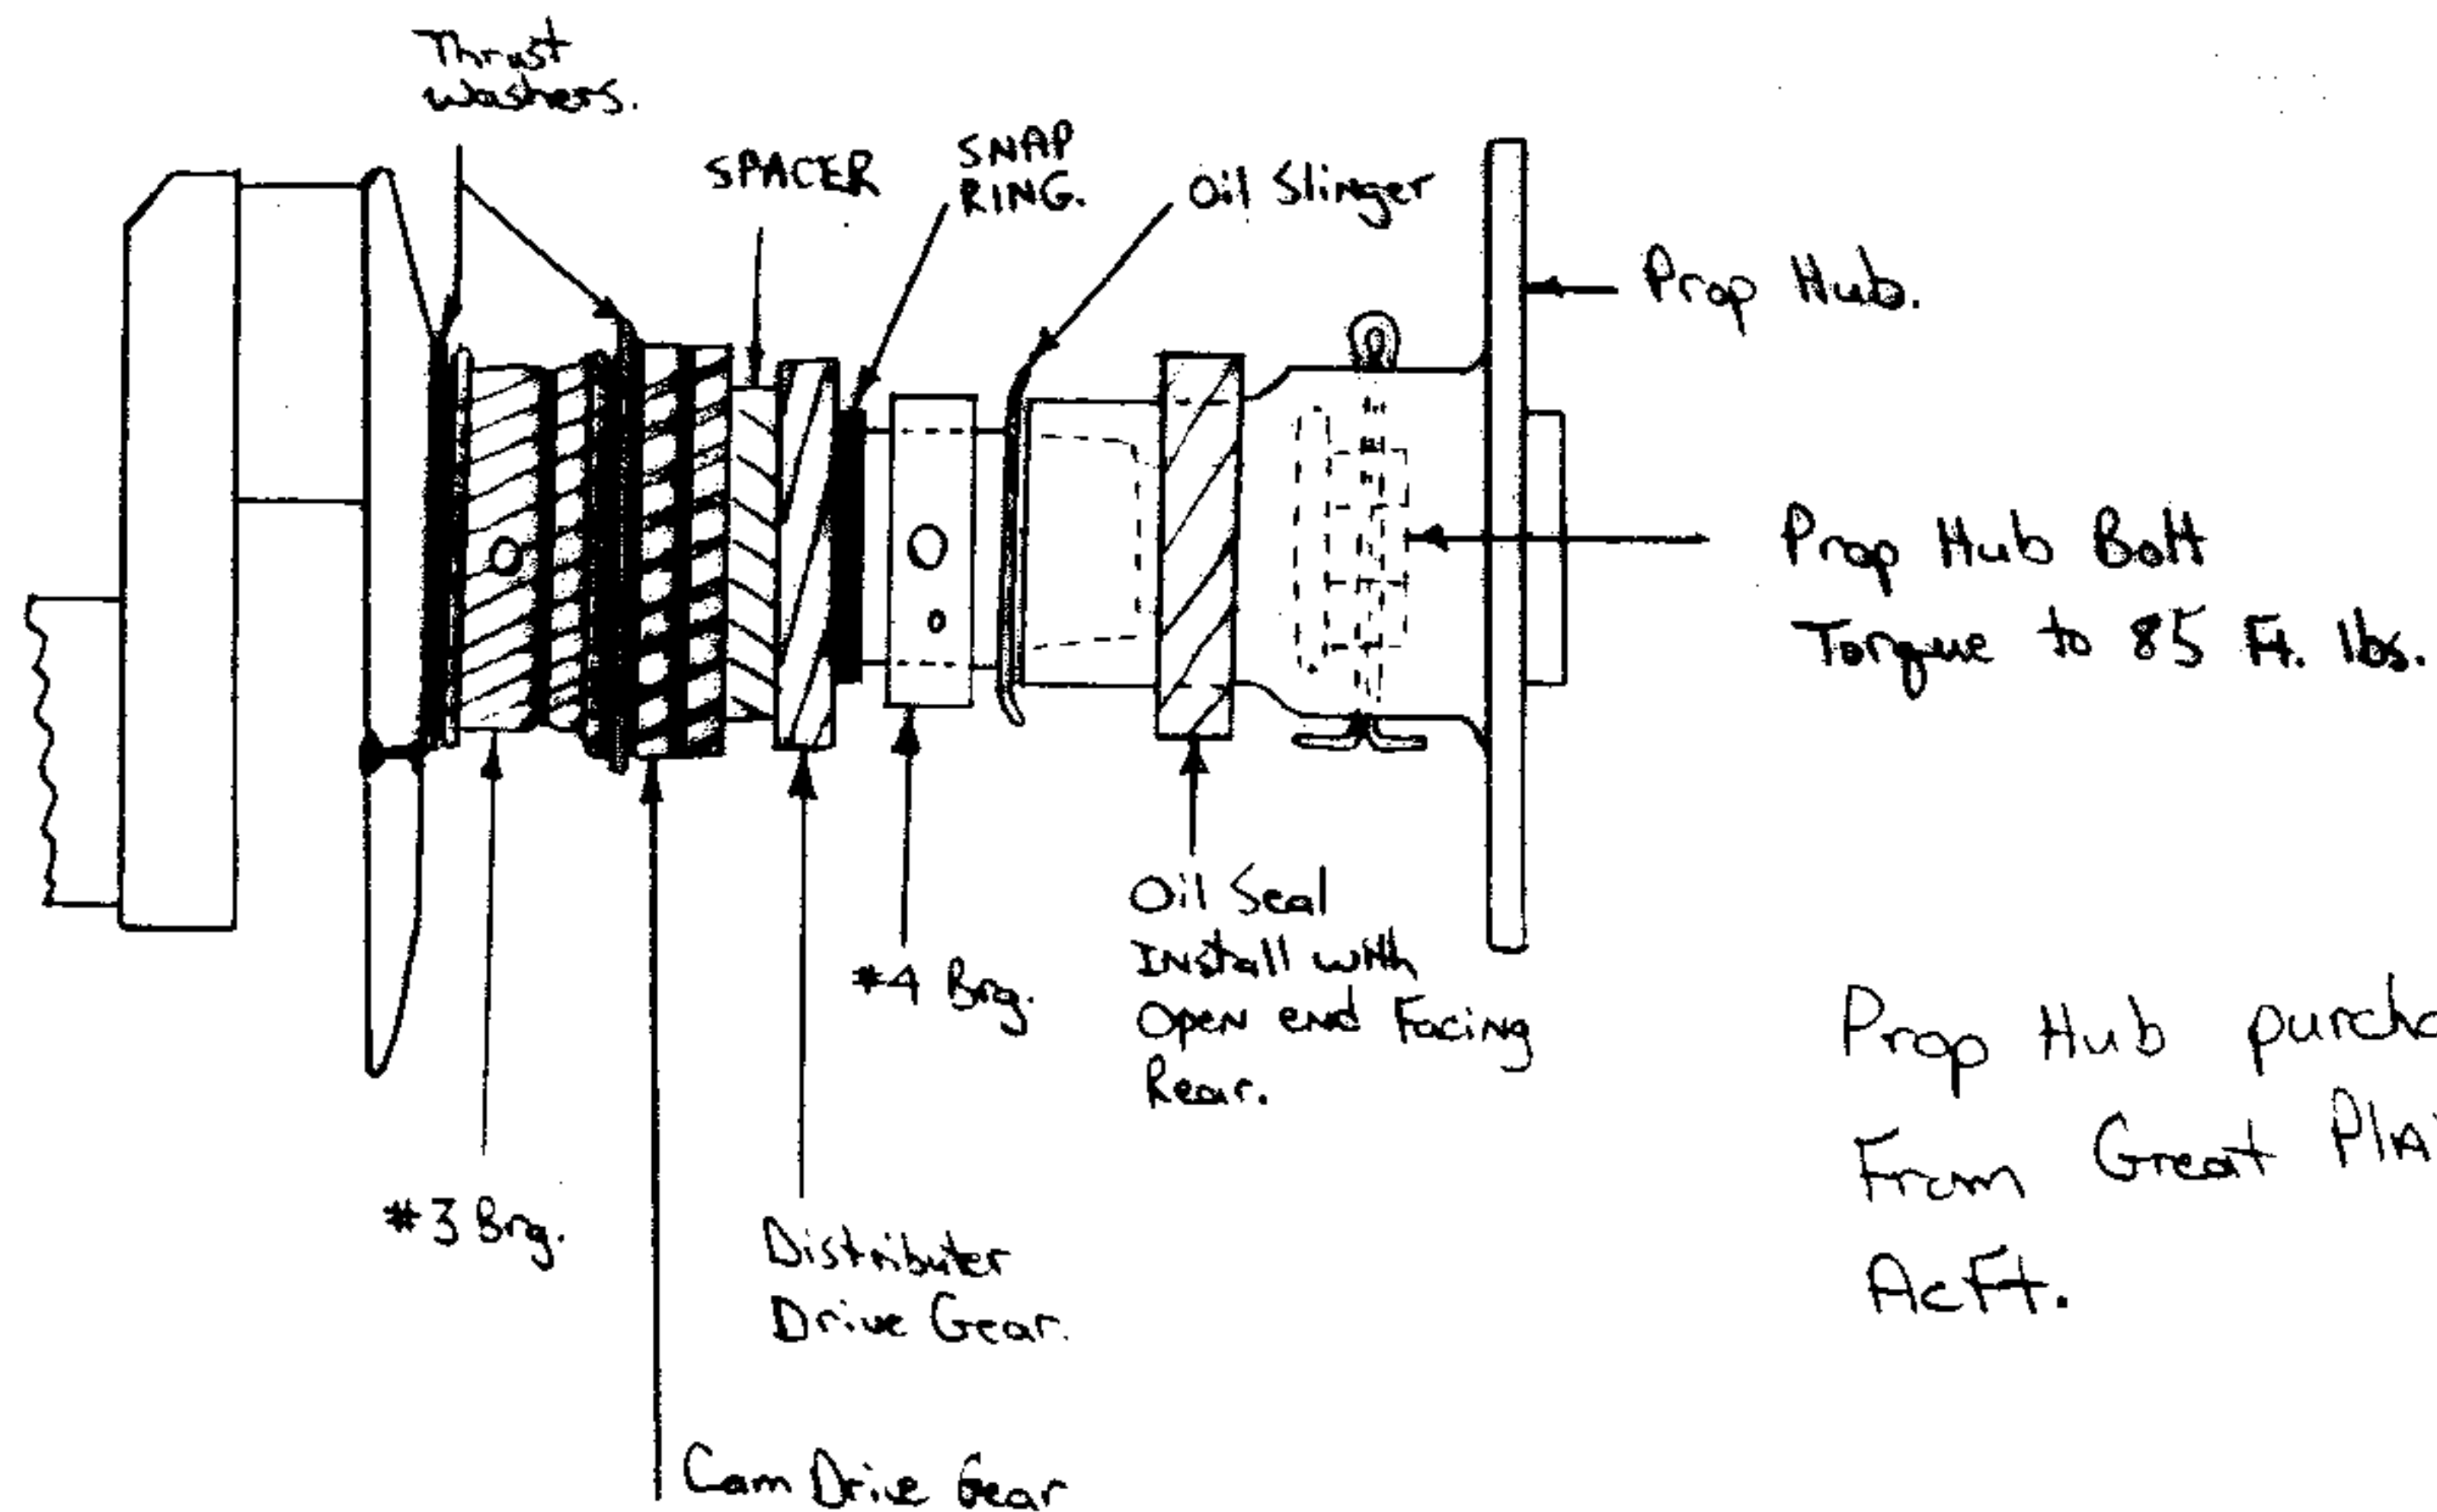 Thrust
washers.
SPACER
SNAP
RING.
Oil Slinger
Prop Hub.
Prop Hub Bolt
Torque to 85 Ft. lbs.
#4 Brg.
Oil Seal
INstall with
OpeN end FaciNg
Rear.
#3 Brg.
Distributer
Drive Gear.
Cam Drive Gear
Prop Hub purcha
From Great PlAi
AcFt.